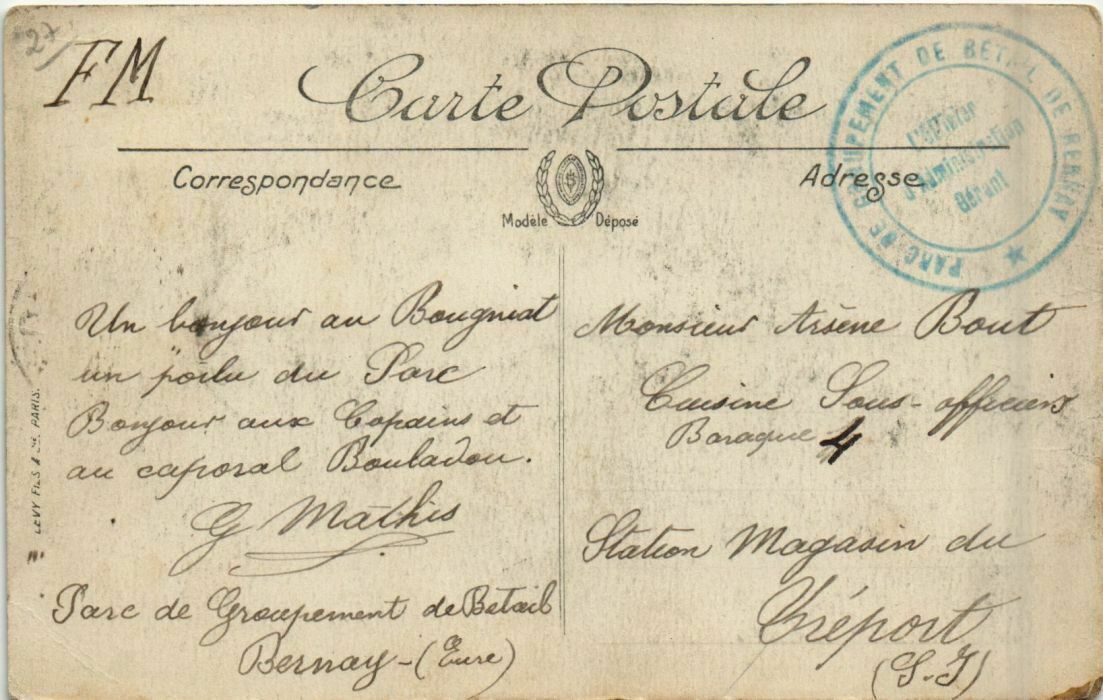 27
FM
Carte Postale
PARC DE GROUPEMENT DE BÉTAIL DE BERNAY
L'Officier
d'Administration
Gérant
Correspondance
Adresse
Modèle Déposé
LEVY FILS & Cie. PARIS.
Un bonjour au Bougniat
un poilu du Parc
Bonjour aux Copains et
au caporal Bouladou.
G Mathis
Parc de Groupement de Betail
Bernay - (Eure)
Monsieur Arsène Bout
Cuisine Sous-officiers
Baraque 4
Station Magasin du
Tréport
(S-I)